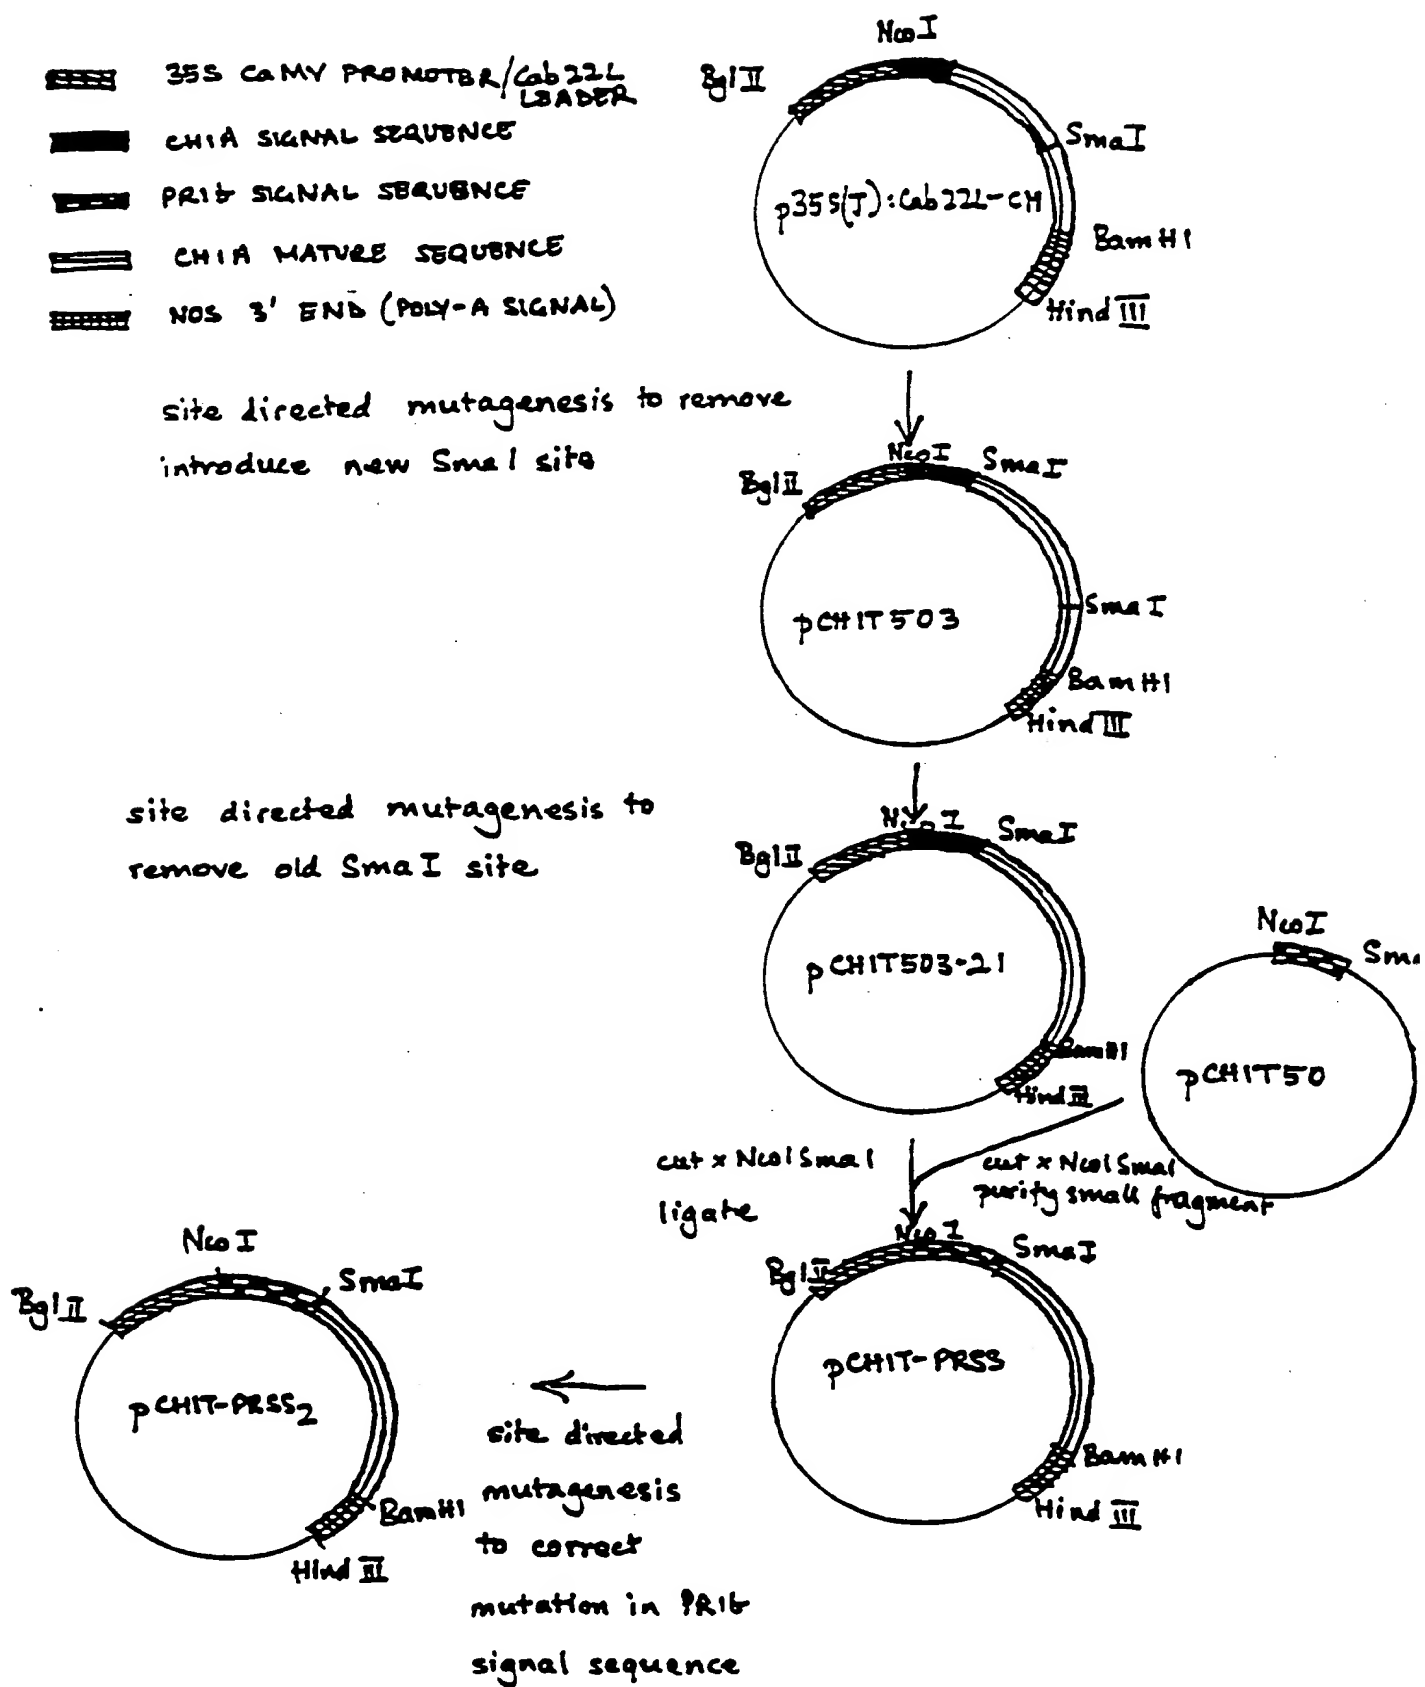 35S CaMV PROMOTER/Cab22L
LEADER
CHIA SIGNAL SEQUENCE
PR1b SIGNAL SEQUENCE
CHIA MATURE SEQUENCE
NOS 3' END (POLY-A SIGNAL)
NcoI
BglII
SmaI
p35S(J):Cab22L-CH
BamHI
HindIII
site directed mutagenesis to remove
introduce new SmaI site
NcoI
SmaI
BglII
pCHIT503
SmaI
BamHI
HindIII
site directed mutagenesis to
remove old SmaI site
NcoI
SmaI
BglII
pCHIT503-21
BamHI
HindIII
NcoI
Sma
pCHIT50
cut x NcoISmaI
ligate
cut x NcoISmaI
purify small fragment
NcoI
SmaI
BglII
pCHIT-PRSS
BamHI
HindIII
site directed
mutagenesis
to correct
mutation in PR1b
signal sequence
NcoI
SmaI
BglII
pCHIT-PRSS2
BamHI
HindIII